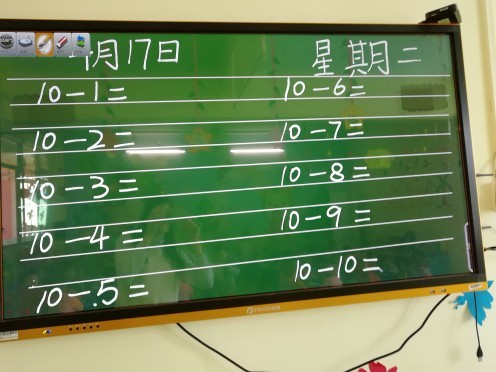 月17日 星期二
10-1= 10-6=
10-2= 10-7=
10-3= 10-8=
10-4= 10-9=
10-5= 10-10=